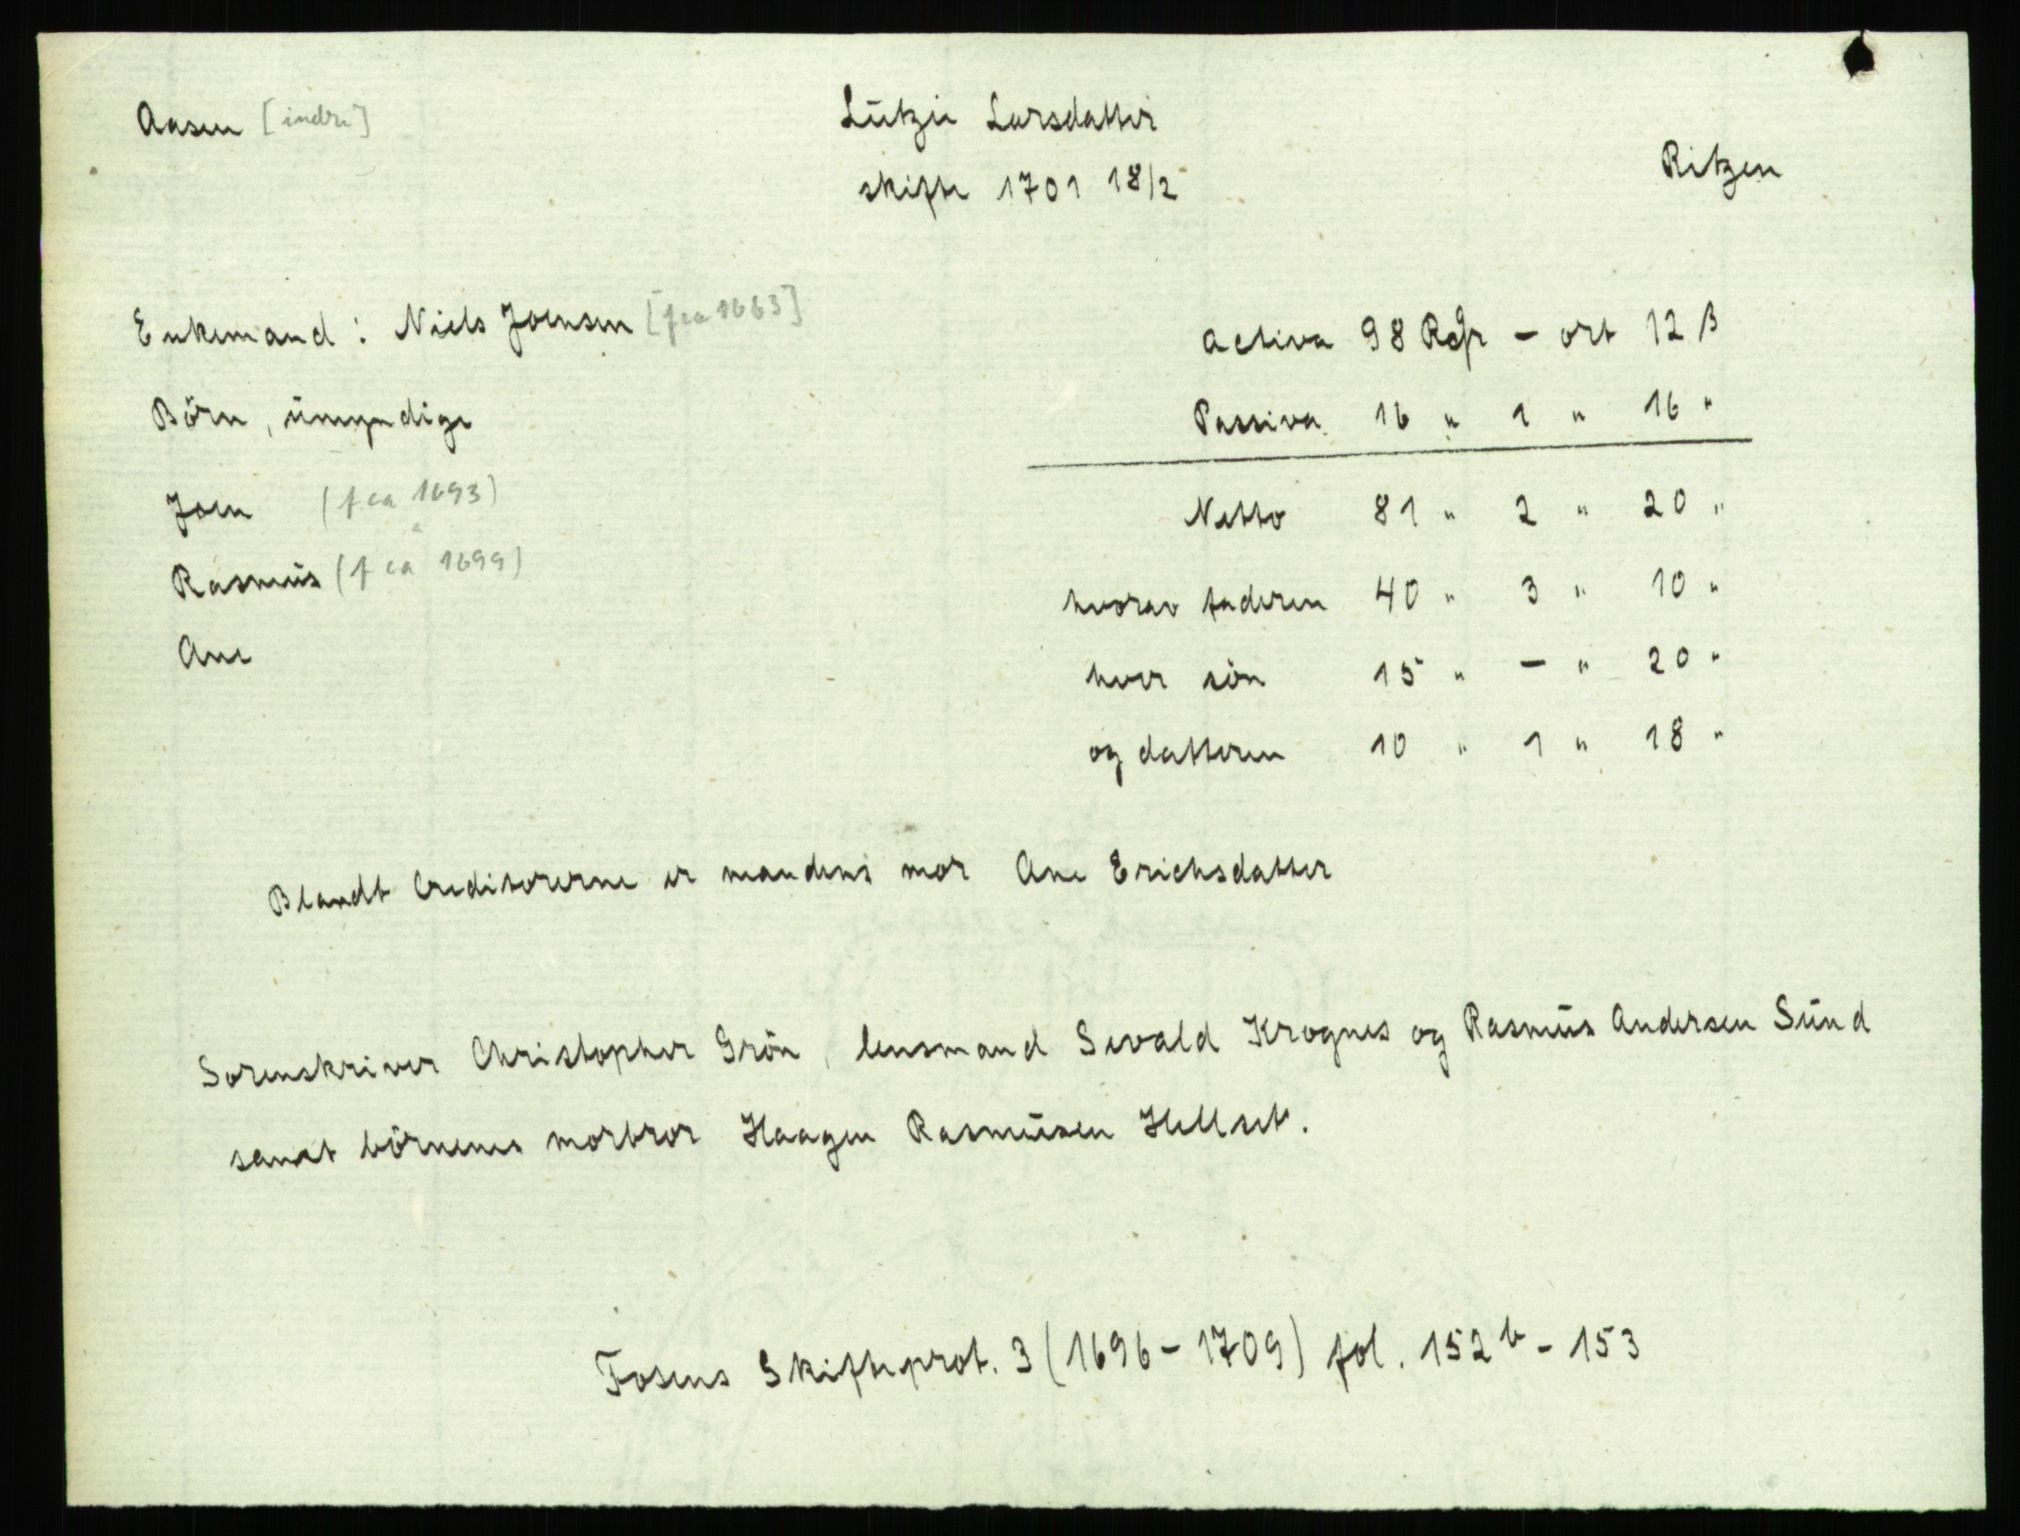 Aasen [indre]
Lützie Larsdatter
skifte 1701 18/2
Ritzen
Enkemand: Niels Joensen [f ca 1663]
Börn, ümyndige
Joen (f ca 1693)
Rasmüs (f ca 1699)
Ane
Activa 98 Rdr – ort 12 β
Passiva 16 " 1 " 16 "
Netto 81 " 2 " 20 "
hvorav faderen 40 " 3 " 10 "
hver sön 15 " – " 20 "
og datteren 10 " 1 " 18 "
Blandt Creditorerne er mandens mor Ane Erichsdatter
Sorenskriver Christopher Grön, lensmand Sivald Krognes og Rasmüs Andersen Sünd
samt börnenes morbror Haagen Rasmüsen Hellset.
Fosens Skifteprot. 3 (1696–1709) fol. 152b – 153